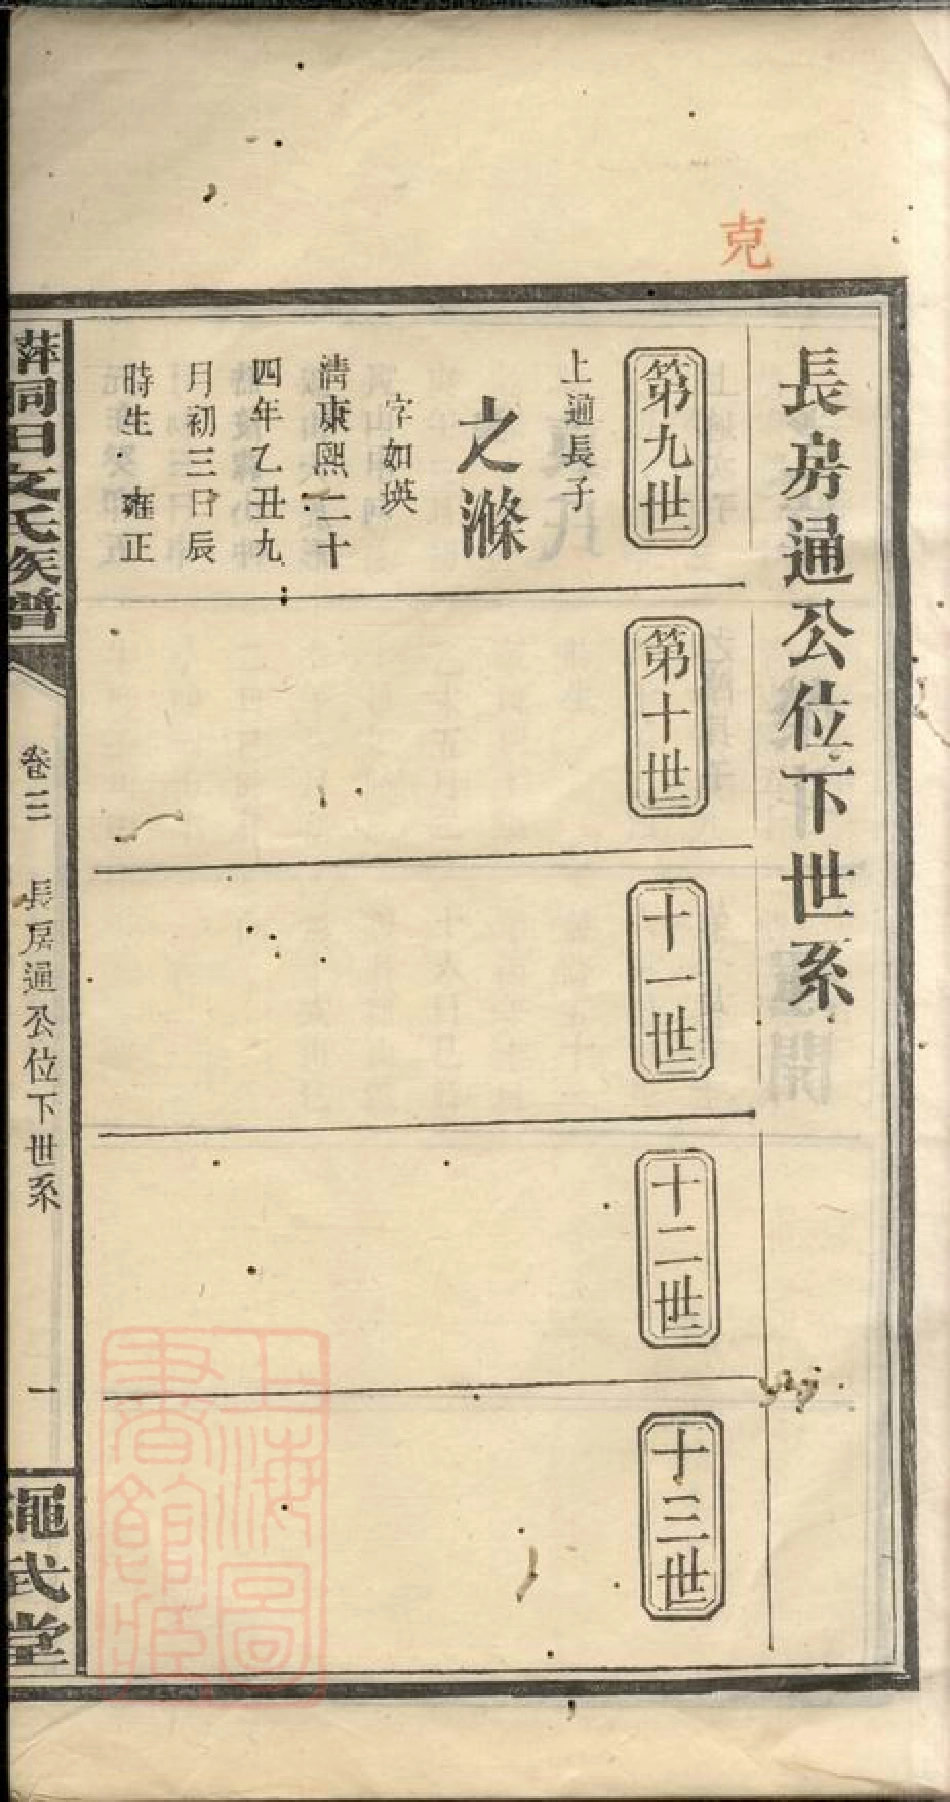 克
長房通公位下世系
第九世
上通長子
之滌
字如瑛
清康熙二十
四年乙丑九
月初三日辰
時生 雍正
第十世
十一世
十二世
十三世
萍同田文氏族譜
卷三 長房通公位下世系 一
繩武堂
上海圖書館藏